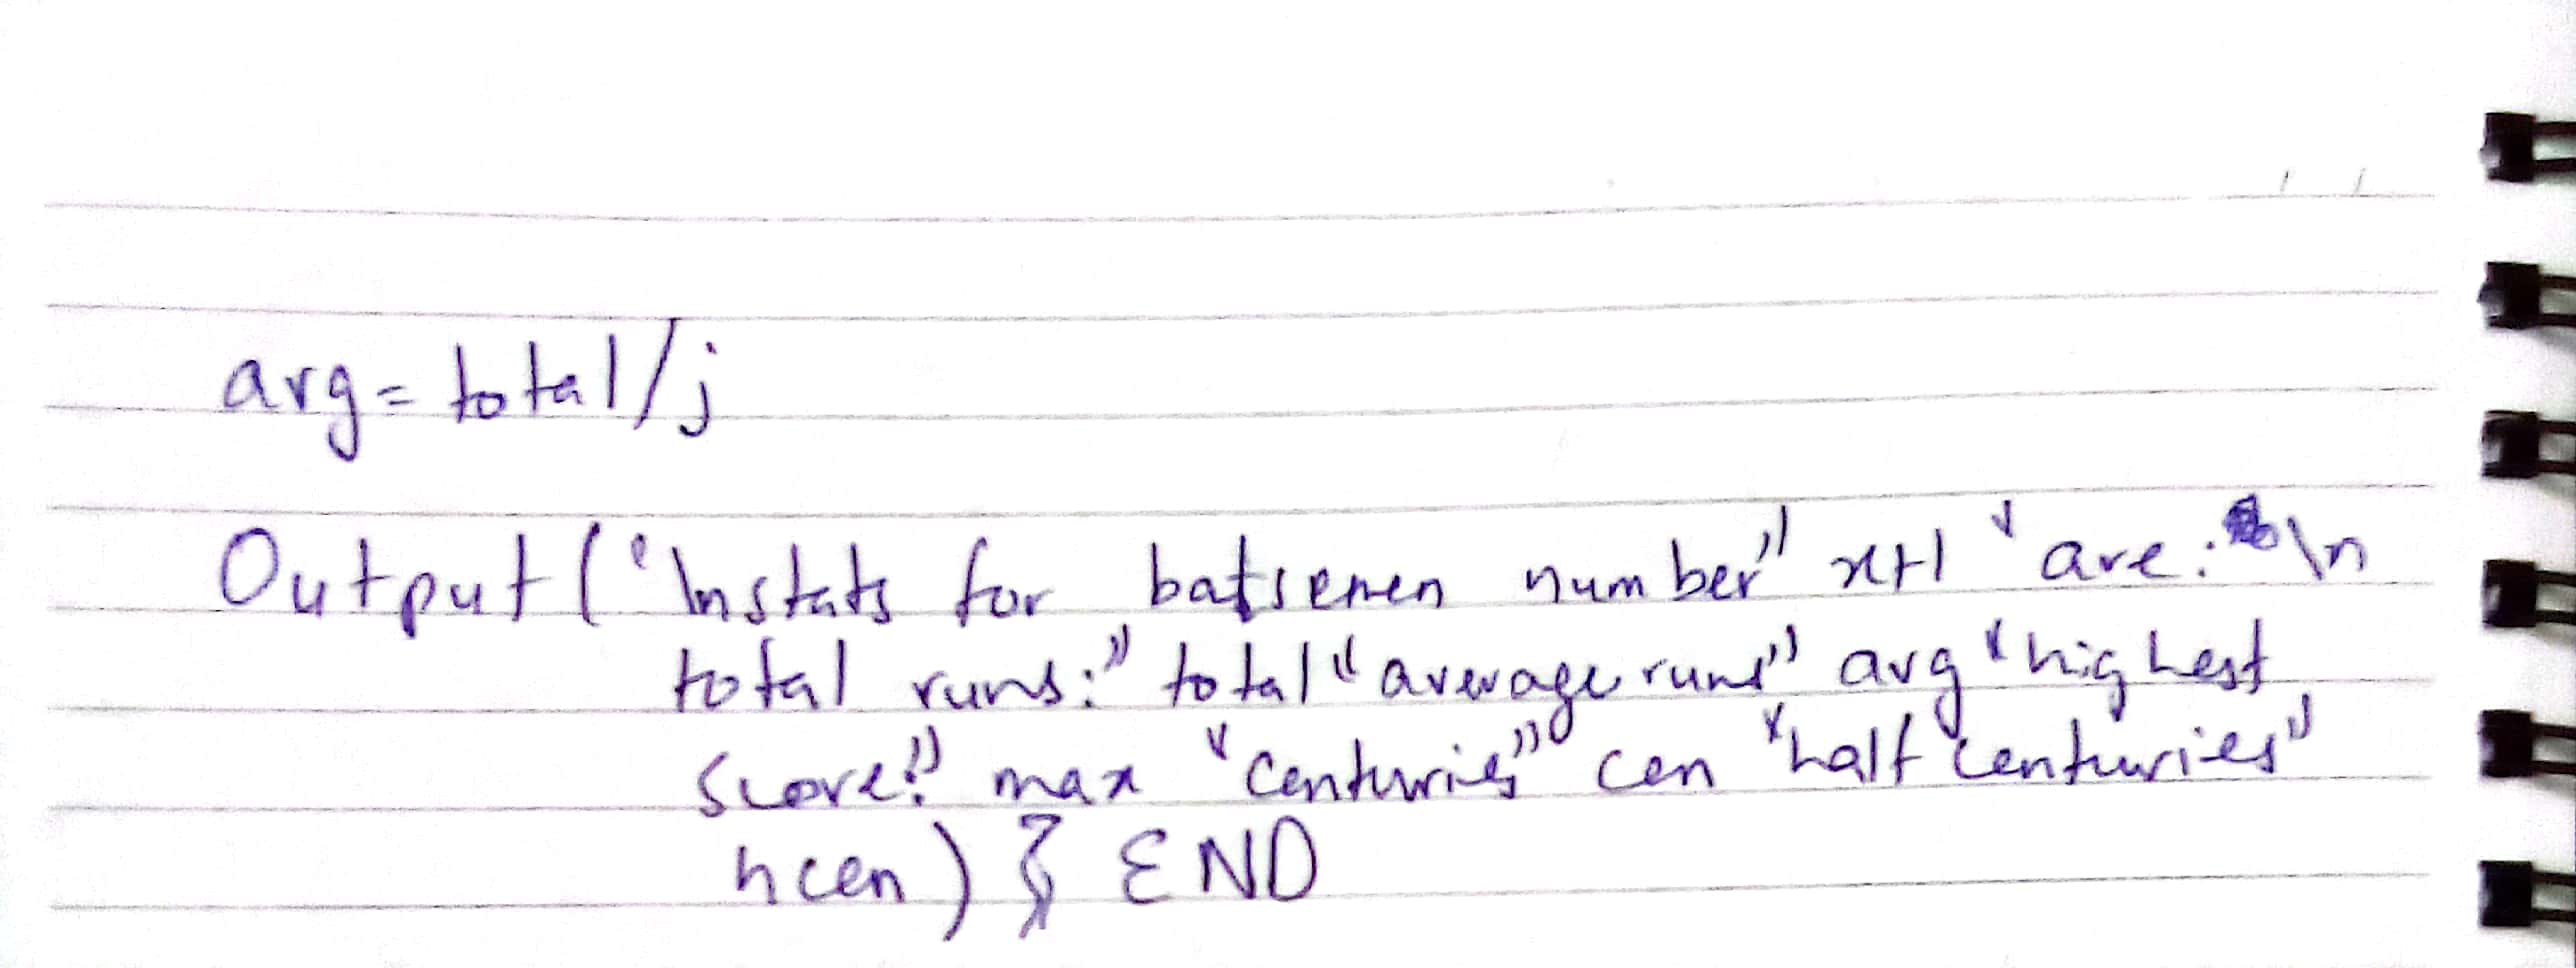 avg= total/j
Output("\nstats for batsemen number" x+1 "are: \n
total runs:" total "average runs" avg "highest
score:" max "centuries" cen "half centuries"
hcen) } END